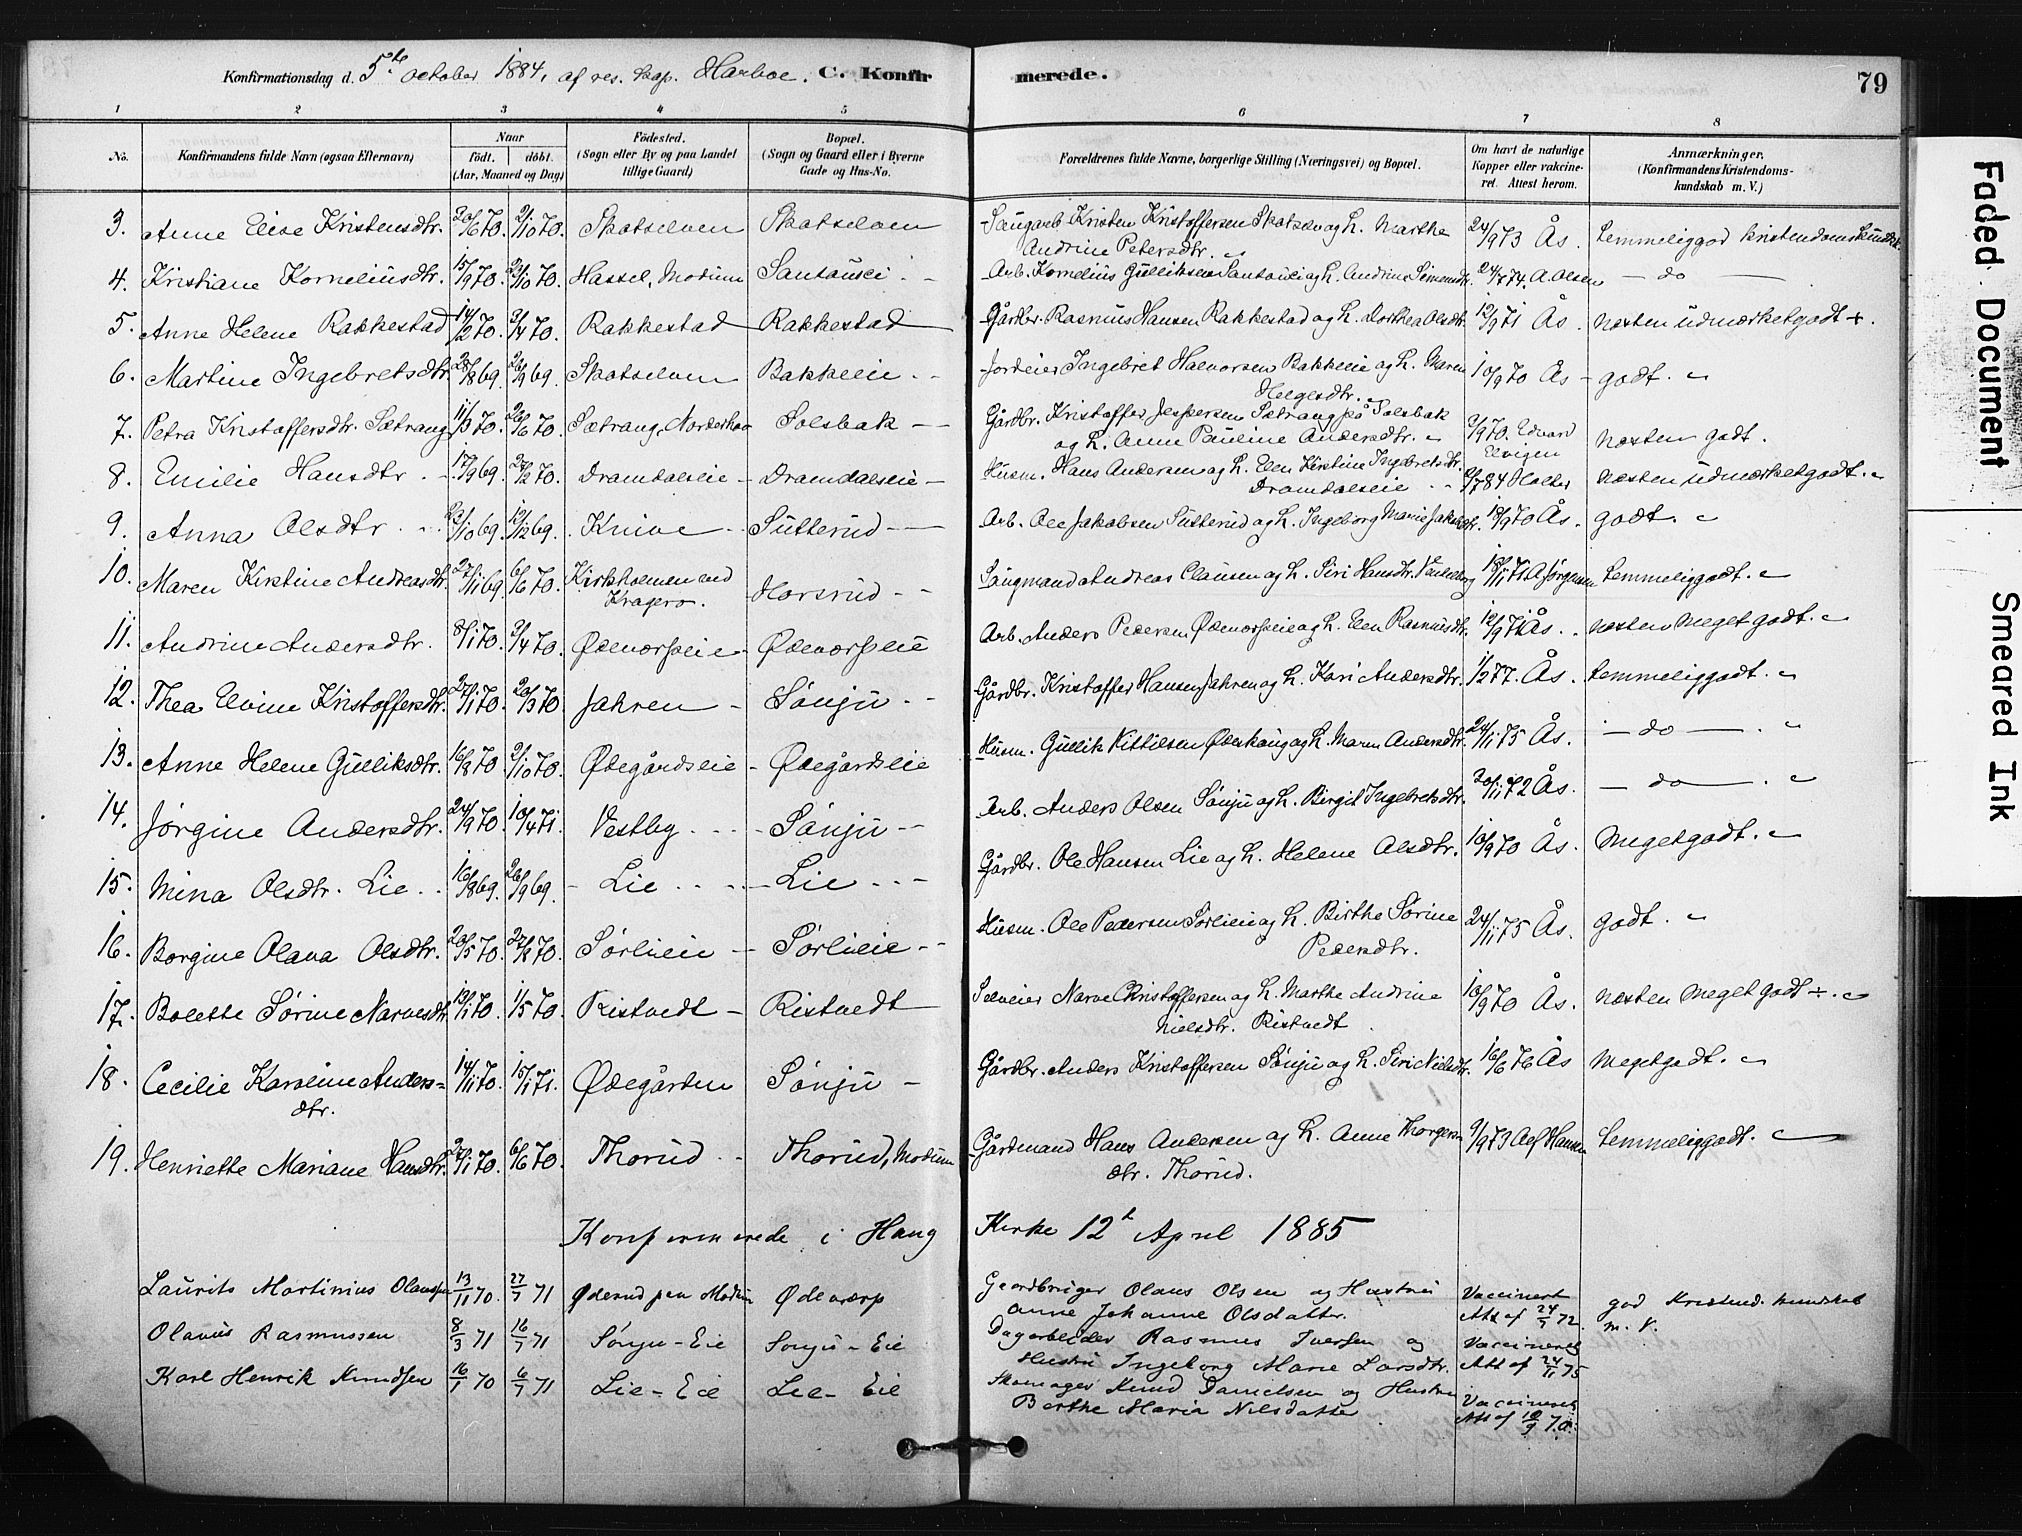 Konfirmationsdag d. 5te october 1884, af res. kap. Harboe. C. Konfirmerede. 79
1 2 3 4 5 6 7 8
No. Konfirmandens fulde Navn (ogsaa Efternavn) Naar født. døbt. (Aar, Maaned og Dag) Fødested. (Sogn eller By og paa Landet tillige Gaard) Bopæl. (Sogn og Gaard eller i Byerne Gade og Hus-No. Forældrenes fulde Navne, borgerlige Stilling (Næringsvei) og Bopæl. Om havt de naturlige Kopper eller vakcineret. Attest herom. Anmærkninger. (Konfirmandens Kristendomskundskab m. V.)
3. Anne Elise Kristensdtr. 20/6 70. 2/10 70. Skotselven Skotselven Saugarb. Kristen Kristoffersen Skotselv og h. Marthe 24/9 73 Ås. Temmeliggod kristendomskundsk.
Andrine Petersdtr.
4. Kristiane Korneliusdtr. 15/9 70. 23/10 70. Hassel, Modum Arb. Kornelius Gulliksen og h. Andrine Simensdtr. 24/7 74. A. Olsen — do —
5. Anne Helene Rakkestad 14/2 70. 3/4 70. Rakkestad Rakkestad Gårdbr. Rasmus Hansen Rakkestad og h. Dorthea Olsdtr. 12/9 71 Ås. Næsten udmærketgodt +.
6. Martine Ingebretsdtr. 28/8 69. 26/9 69. Skotselven Bakkeeie Jordeier Ingebret Halvorsen Bakkeeie og h. Maren 10/9 70 Ås godt.
Helgesdtr.
7. Petra Kristoffersdtr. Sætrang 11/3 70. 26/6 70. Sætrang, Norderhov Solsbak Gårdbr. Kristoffer Jespersen Sætrang på Solsbak 2/9 70. Edvard Næsten godt.
og h. Anne Pauline Andersdtr. Elvigen
8. Emilie Hansdtr. 17/9 69. 27/2 70. Dramdalseie Dramdalseie Husm. Hans Andersen og h. Elen Kirstine Ingebretsdtr. 2/7 84 Holter Næsten udmærketgodt.
Dramdalseie
9. Anna Olsdtr. 23/10 69. 12/12 69. Knive Sutterud Arb. Ole Jakobsen Sutterud og h. Ingeborg Marie Jakobsdtr. 18/9 70 Ås. godt.
10. Maren Kirstine Andreasdtr. 27/11 69. 6/6 70. Kirkholmen ved Horsrud Saugmand Andreas Clausen og h. Siri Hansdtr. 18/11 71 A Jørgensen Temmeliggodt.
Kragerø.
11. Andrine Andersdtr. 8/1 70. 3/4 70. Ødeværpseie Ødeværpseie Arb. Anders Pedersen Ødeværpseie og h. Elen Rasmusdtr. 12/9 71 Ås. Næsten Meget godt.
12. Thea Elvine Kristoffersdtr. 27/1 70. 20/3 70. Jahren Sønju Gårdbr. Kristoffer Hansen Jahren og h. Kari Andersdtr. 1/2 77. Ås. Temmeliggodt.
13. Anne Helene Gulliksdtr. 16/8 70 2/10 70. Ødegårdseie Ødegårdseie Husm. Gullik Kittilsen Øderhaug og h. Maren Andersdtr. 24/11 75 Ås. — do —
14. Jørgine Andersdtr. 24/9 70. 10/4 71. Vestby Sønju Arb. Anders Olsen Sønju og h. Birgit Ingebretsdtr. 20/11 72 Ås. — do —
15. Mina Olsdtr. Lie 16/8 69. 26/9 69. Lie Lie Gårdbr. Ole Hansen Lie og h. Helene Olsdtr. 10/9 70 Ås. Megetgodt.
16. Borgine Olava Olsdtr. 20/5 70. 27/8 70. Sørlieie Sørlieie Husm. Ole Pedersen Sørlieie og h. Birthe Sørine 24/11 75 Ås. godt.
Pedersdtr.
17. Bolette Sørine Narvesdtr. 13/1 70. 1/5 70. Ristvedt Ristvedt Selveier Narve Christoffersen og h. Marthe Andrine 10/9 70 Ås. Næsten Meget godt ÷.
Nielsdtr. Ristvedt
18. Cecilie Karoline Anders- 14/11 70. 15/1 71. Ødegården Sønju Gårdbr. Anders Kristoffersen Sønju og h. Siri Nielsdtr. 16/6 76 Ås Megetgodt.
dtr.
19. Henriette Mariane Hansdtr. 24/1 70. 6/6 70. Thorud Thorud, Modum Gårdmand Hans Andersen og h. Anne Thorgers 9/9 73 Hansen Temmeliggodt.
dtr. Thorud.
Konfirmerede i Haug Kirke 12t April 1885
Laurits Martinius Olaussen 13/11 70. 27/7 71 Øderud paa Modum Ødeværp Gaardbruger Olaus Olsen og Hustru Vaccineret god Kristend. kundskab
Anne Johanne Olsdatter. Att af 24/7 72. m. V.
Olavus Rasmussen 8/3 71 16/7 71 Sönju-Eie Sonju-Eie Dagarbeider Rasmus Iversen og Vaccineret
Hustru Ingeborg Marie Larsdtr. Att af 24/11 75
Karl Henrik Knudsen 16/1 70 6/7 71 Lie-Eie Lie-Eie Skomager Knud Danielsen og Hustru Vaccineret
Berthe Maria Nilsdatter Att af 10/9 70.
Faded Document
Smeared Ink